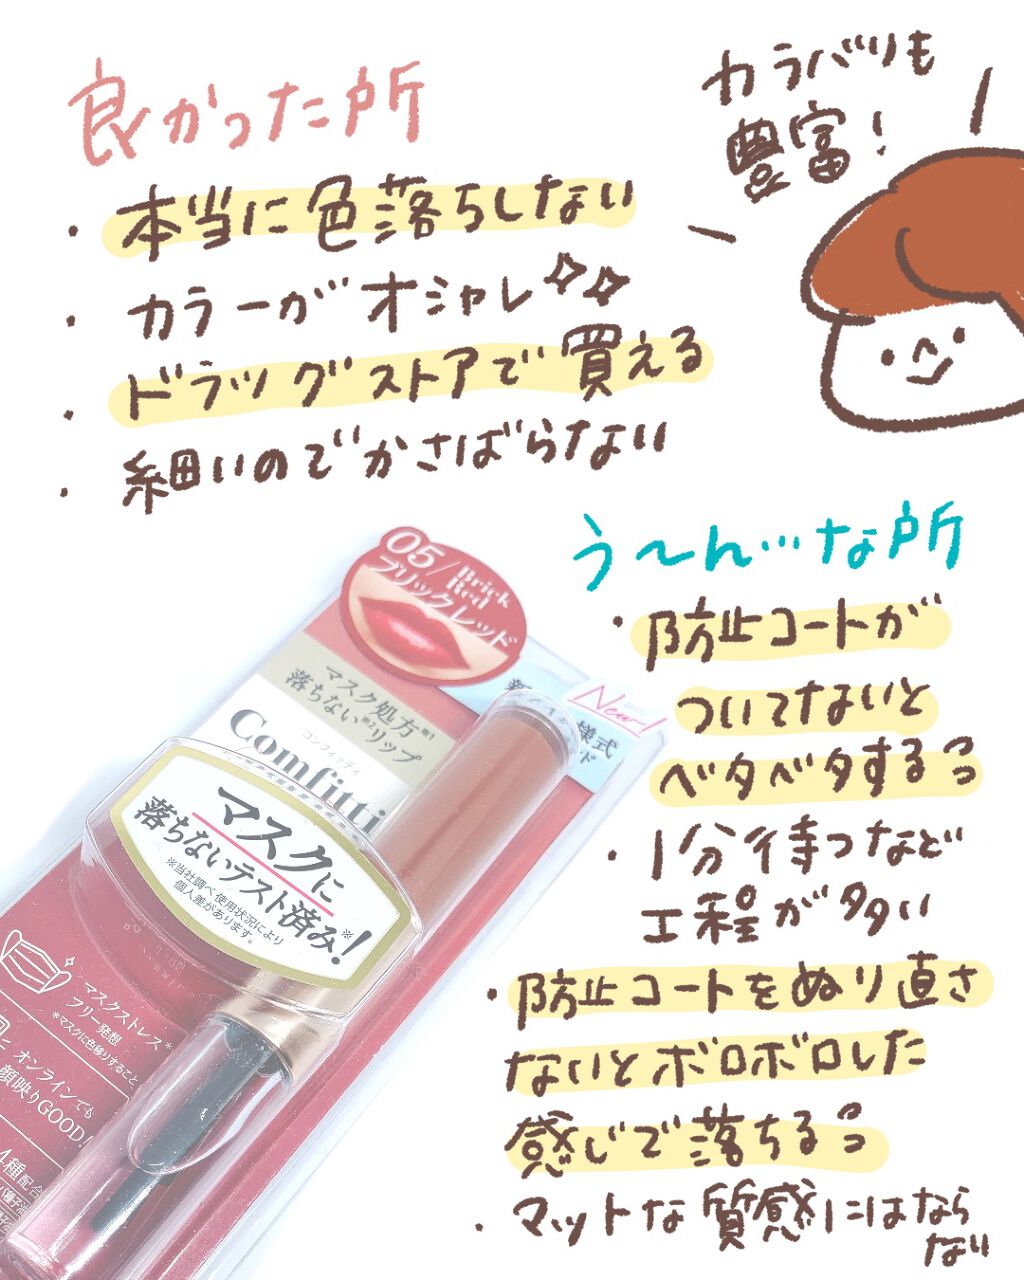 良かった所
・本当に色落ちしない
・カラーがオシャレ
・ドラッグストアで買える
・細いのでかさばらない
カラバリも
豊富!
う〜ん…な所
・防止コートが
ついてないと
ベタベタする
・1分待つなど
工程が多い
・防止コートをぬり直さ
ないとボロボロした
感じで落ちる
・マットな質感にはなら
ない
05/Brick
Red
ブリックレッド
マスク処方※1
落ちない※2リップ
コンフィッティ
Comfitti
New!
様式
マスクに
落ちないテスト済み!※
※当社調べ 使用状況により
個人差があります。
マスクストレス*
フリー発想
*マスクに色移りすること
オンラインでも
顔映りGOOD!
4種配合